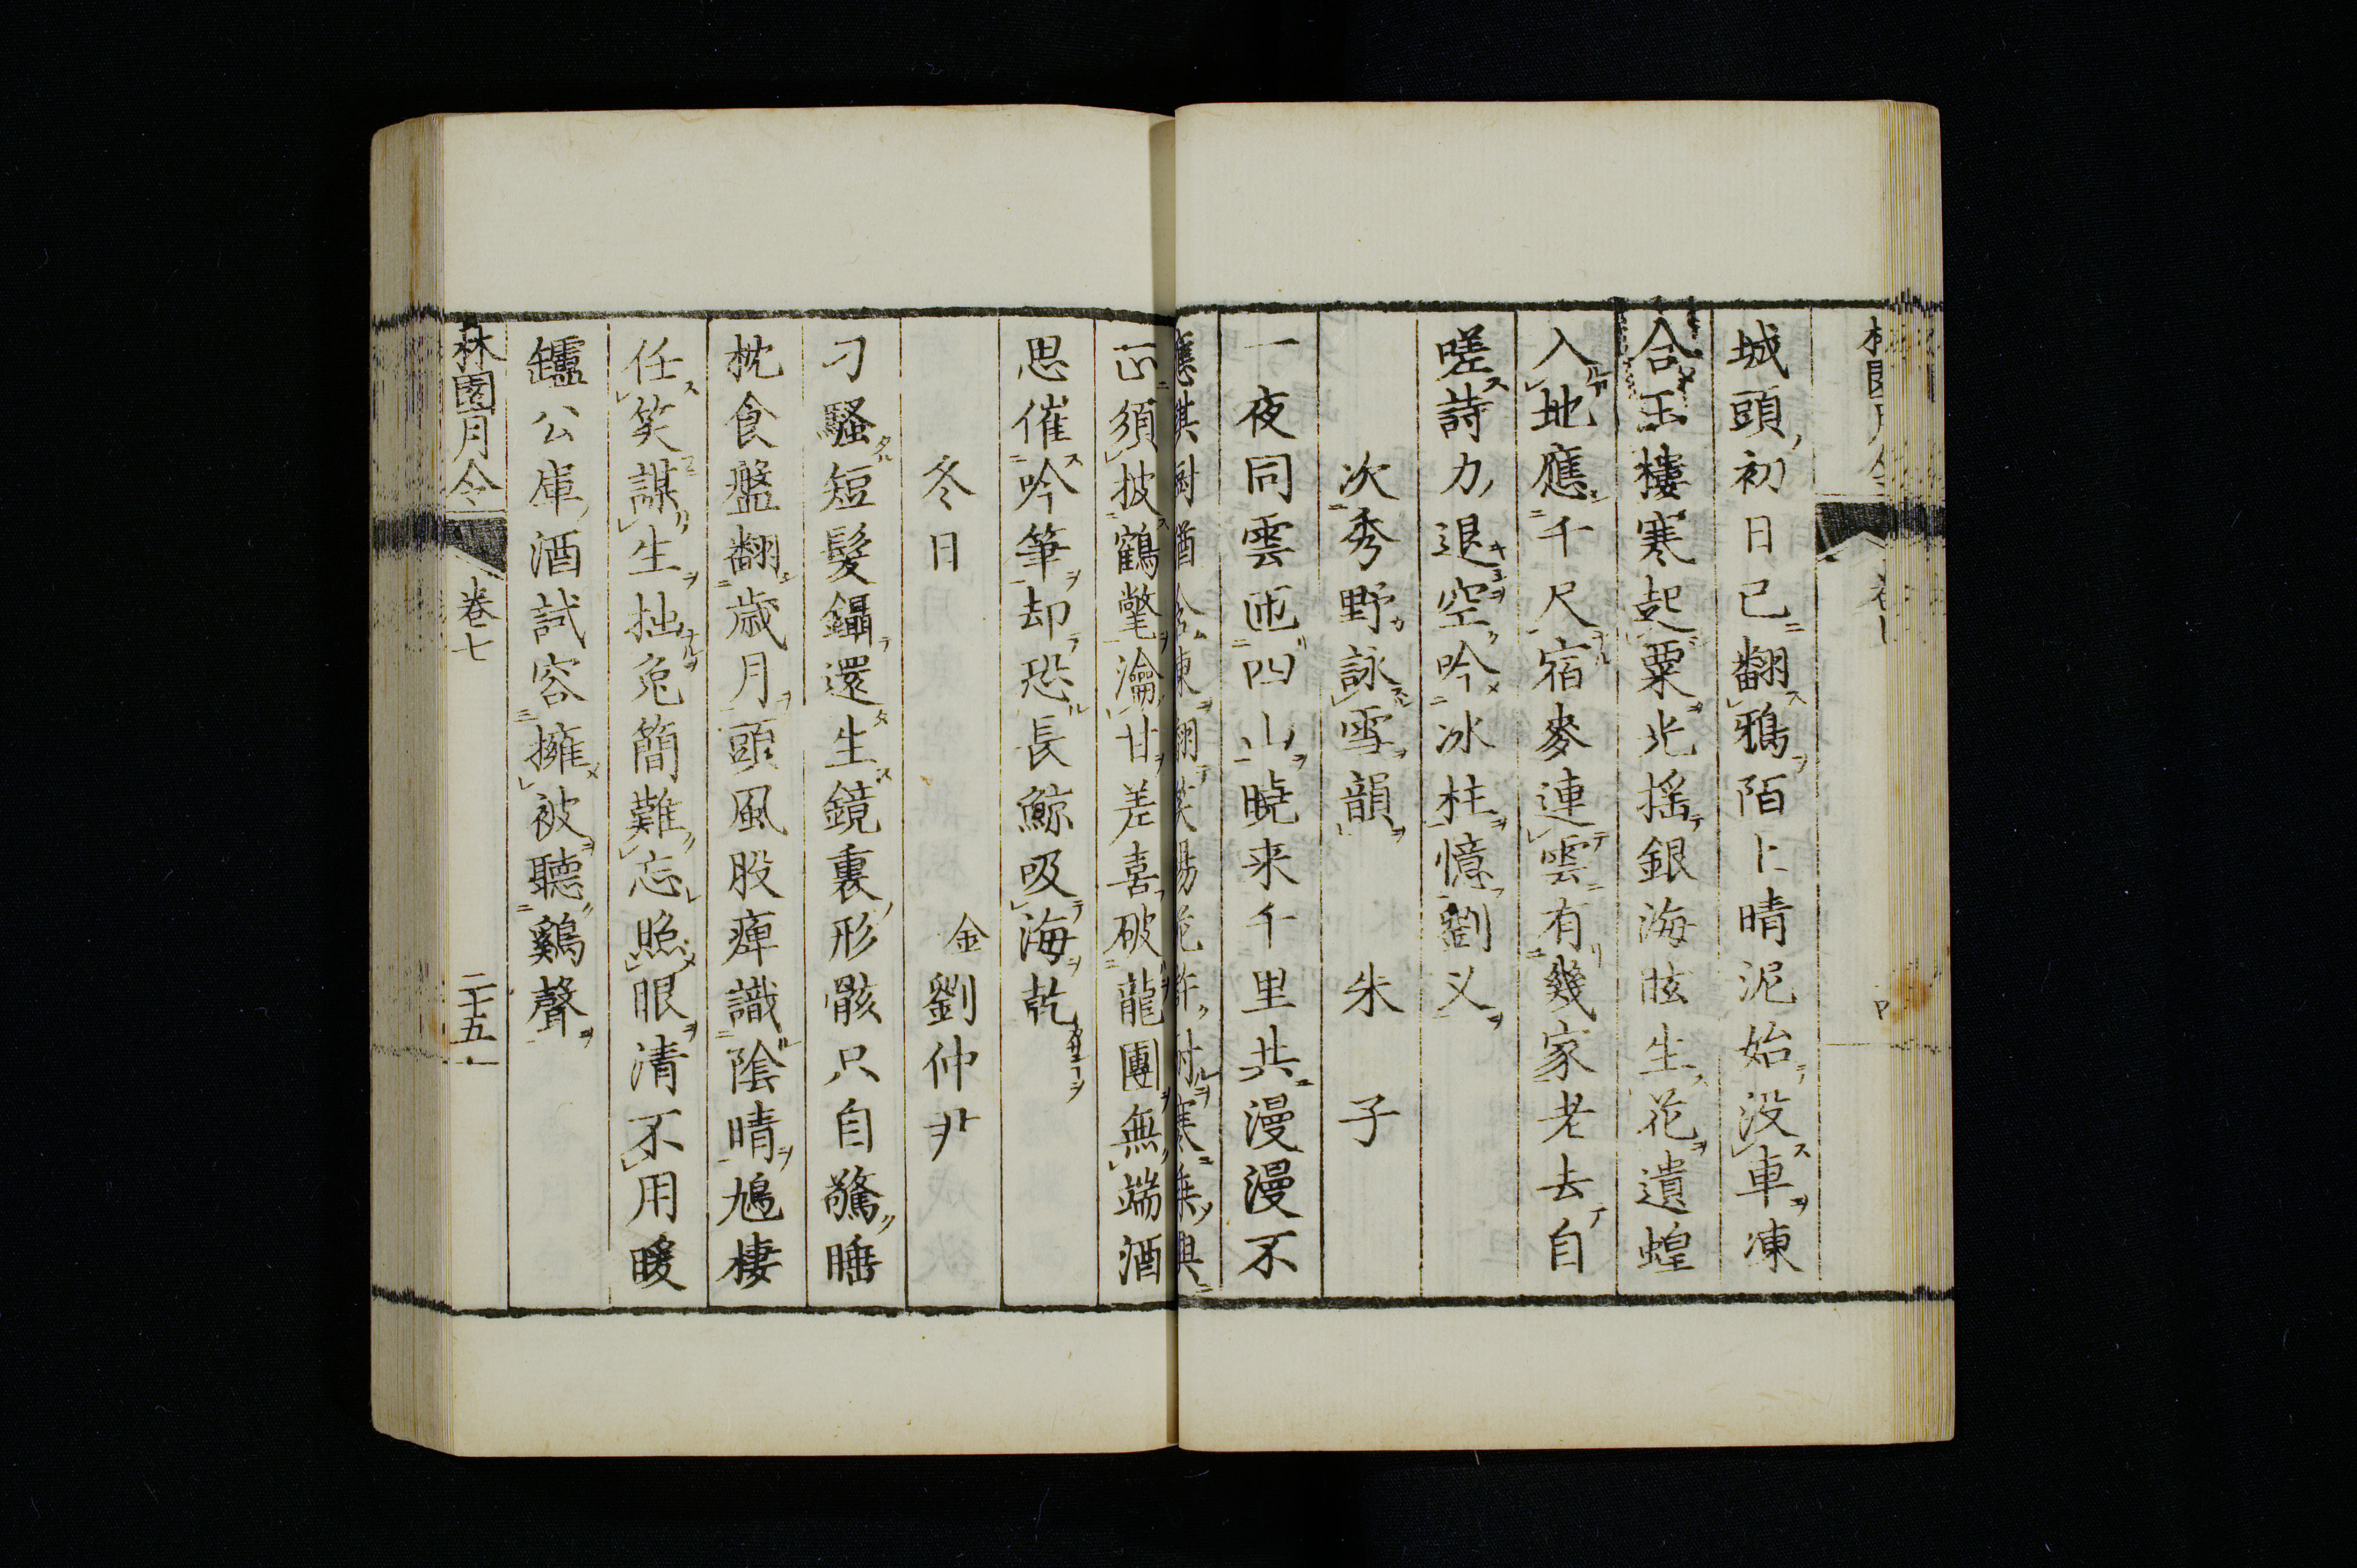 城頭初日已翻鴉陌上晴泥始没車凍
合玉樓寒起粟光揺銀海眩生花遺蝗
入地應千尺宿麥連雲有幾家老去自
嗟詩力退空吟冰柱憶劉叉
次秀野詠雪韻 朱子
一夜同雲匝四山曉来千里共漫漫不
應琪樹猶含凍翻笑楊花許耐寒乗興
正須披鶴氅瀹甘差喜破龍團無端酒
思催吟筆却恐長鯨吸海乾
冬日 金劉仲尹
刁騷短髮鑷還生鏡裏形骸只自驚睡
枕食盤翻歳月頭風股痺識陰晴鳩棲
任笑謀生拙兔簡難忘照眼清不用暖
鑪公庫酒試容擁被聽鷄聲
林園月令 卷七 二十五